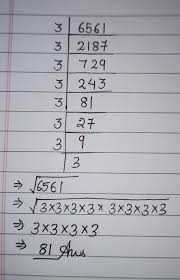 3 | 6561
3 | 2187
3 | 729
3 | 243
3 | 81
3 | 27
3 | 9
3
⇒ √6561
⇒ √3×3×3×3×3×3×3×3
⇒ 3×3×3×3
⇒ 81 Ans